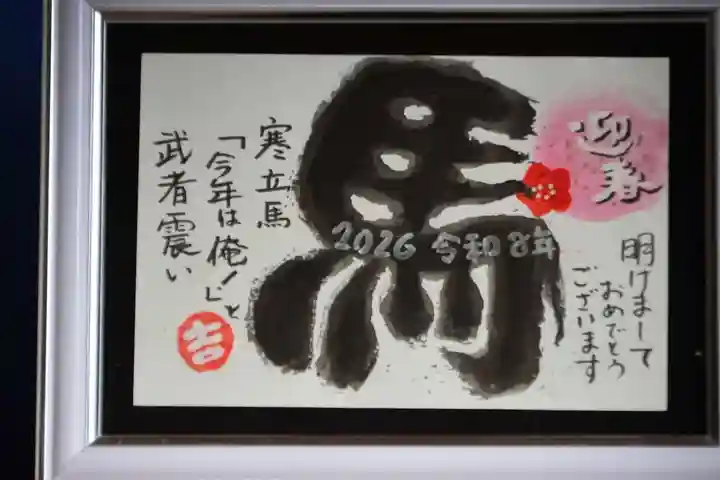 迎春
明けまして
おめでとう
ございます
馬
2026 令和8年
寒立馬
「今年は俺!」と
武者震い
吉